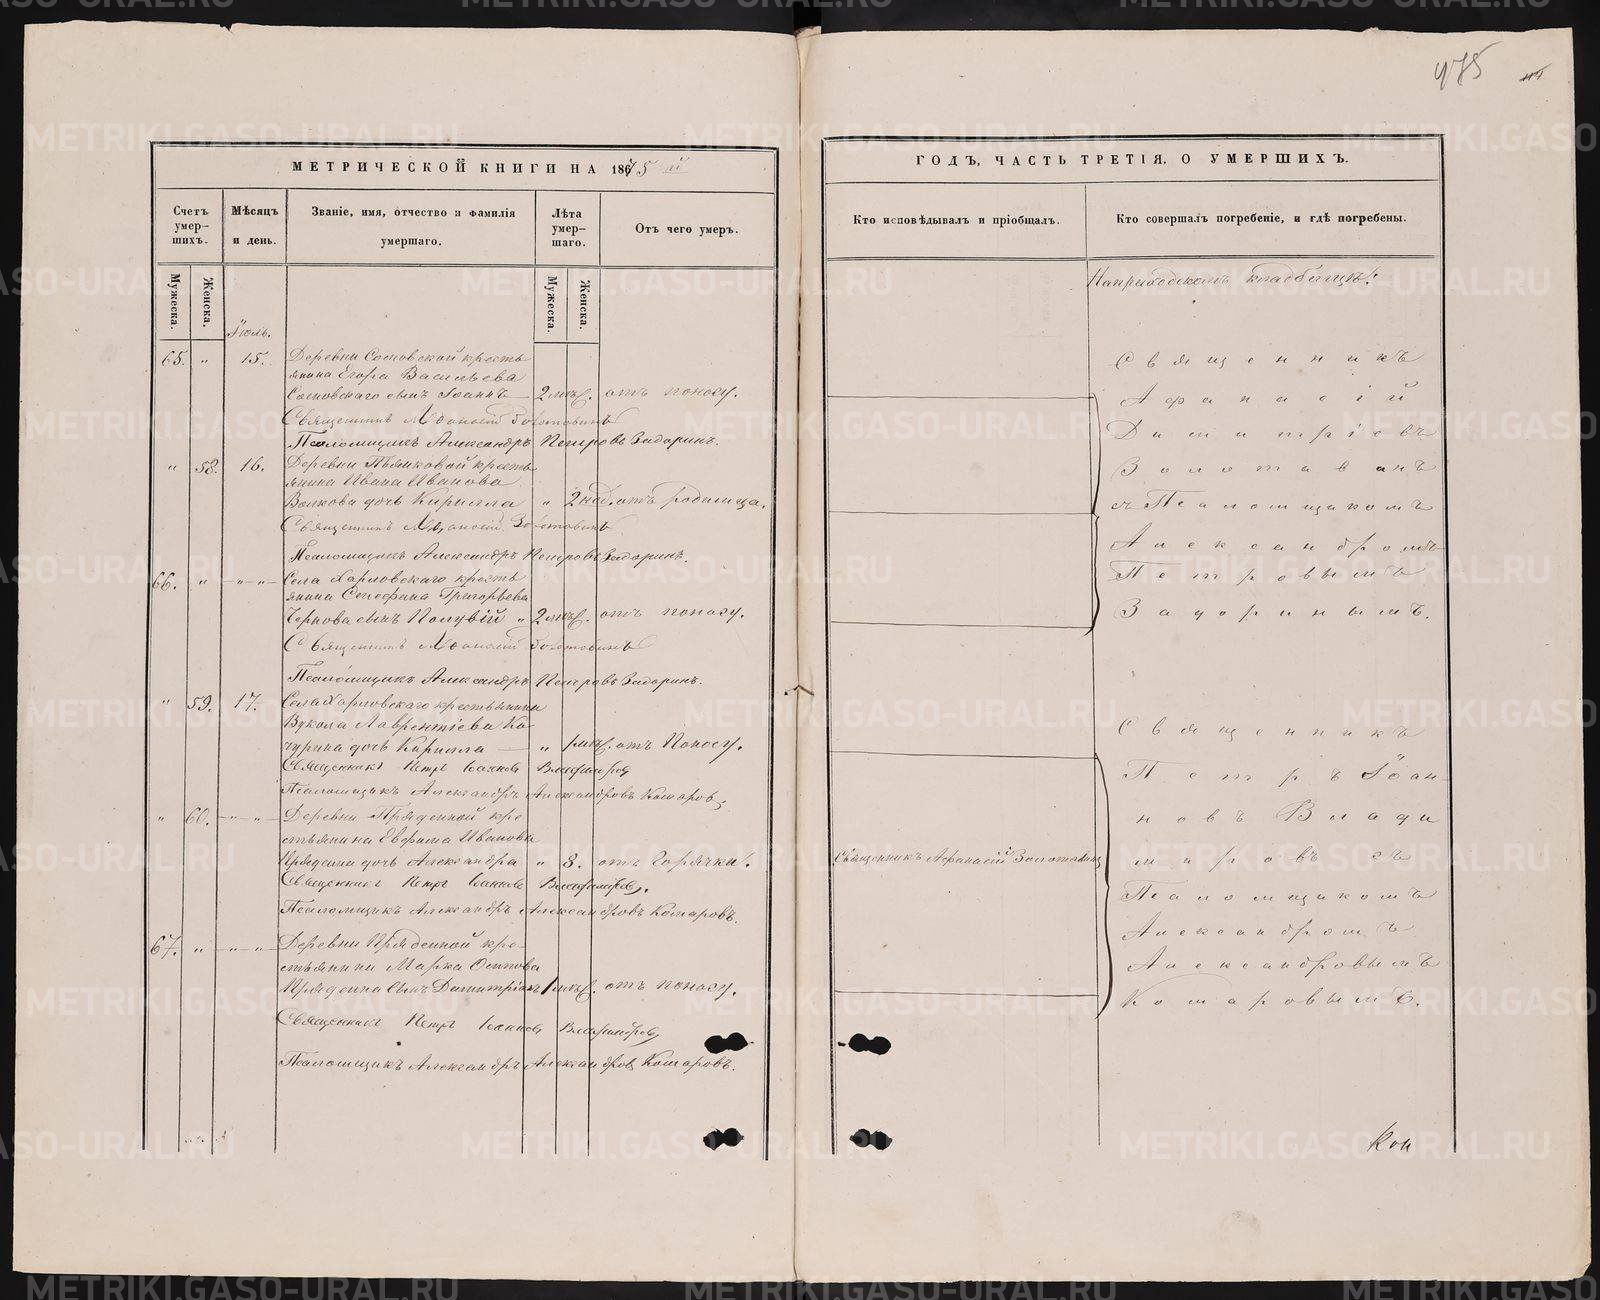 475
МЕТРИЧЕСКОЙ КНИГИ НА 1875 й
Счетъ умер-
шихъ.
Мѣсяцъ
и день.
Званіе, имя, отчество и фамилія
умершаго.
Лѣта
умер-
шаго.
Отъ чего умеръ.
Мужеска.
Женска.
Мужеска.
Женска.
Іюль.
65. " 15. Деревни Сосновской кресть
янина Егора Васильева
Сосновскаго сынъ Іоаннъ — 2 мѣс. отъ поносу.
Священникъ Афанасій Золотавинъ
Псаломщикъ Александръ Петровъ Задоринъ.
" 58. 16. Деревни Пьянковой кресть
янина Ивана Иванова
Волкова дочь Кирилла " 2 нед. отъ родимца.
Священникъ Афанасій Золотавинъ
Псаломщикъ Александръ Петровъ Задоринъ.
66. " — " — " — Села Харловскаго кресть
янина Григорьева
Чернова сынъ " 2 мѣс. отъ поносу.
Священникъ Афанасій Золотавинъ
Псаломщикъ Александръ Петровъ Задоринъ.
" 59. 17. Села Харловскаго крестьянина
Вукола Лаврентіева Ка
чурина дочь Кирилла — " 1 мѣс. отъ Поносу.
Священникъ Петръ Іоанновъ Владиміровъ
Псаломщикъ Александръ Александровъ Комаровъ.
" 60. — " — " — Деревни Пряденной кре
стьянина Евфима Иванова
Прядеина дочь Александра " 8. отъ Горячки.
Священникъ Петръ Іоанновъ Владиміровъ.
Псаломщикъ Александръ Александровъ Комаровъ.
67. " — " — " — Деревни Пряденной кре-
стьянина Марка Осипова
Прядеина сынъ Димитрій 1 мѣс. отъ поносу.
Священникъ Петръ Іоанновъ Владиміровъ
Псаломщикъ Александръ Александровъ Комаровъ.
ГОДЪ, ЧАСТЬ ТРЕТІЯ, О УМЕРШИХЪ.
Кто исповѣдывалъ и пріобщалъ.
Кто совершалъ погребеніе, и гдѣ погребены.
На приходскомъ кладбищѣ:
Священникъ
Афанасій
Димитріевъ
Золотавинъ
съ Псаломщикомъ
Александромъ
Петровымъ
Задоринымъ.
Священникъ
Петръ Іоан-
новъ Влади
міровъ съ
Псаломщикомъ
Александромъ
Александровымъ
Комаровымъ.
Священникъ Афанасій Золотавинъ
Кон
METRIKI.GASO-URAL.RU